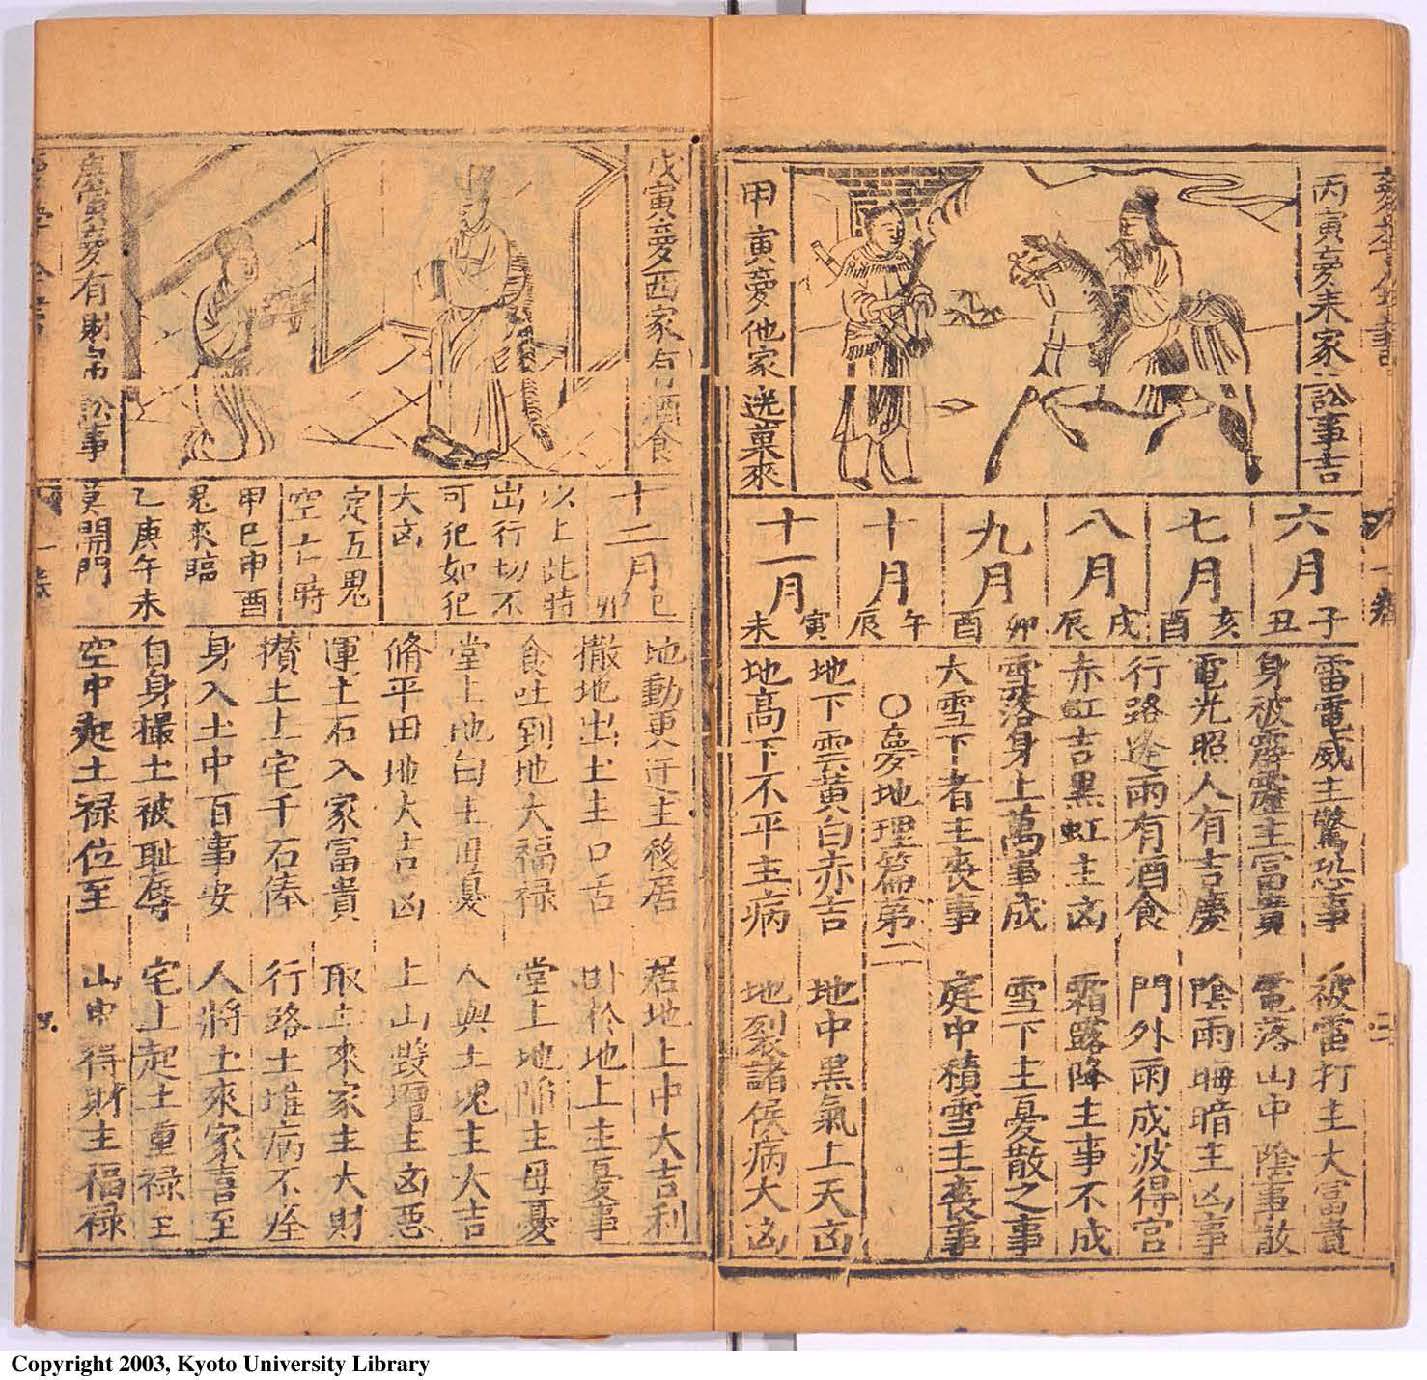 丙寅夢耒家主訟事吉
甲寅夢他家送菓來
六月 子丑
七月 亥酉
八月 戌辰
九月 卯酉
十月 午辰
十一月 寅未
雷電威主驚恐事 被雷打主大富貴
身被霹靂主富貴 電落山中陰事散
電光照人有吉慶 陰雨晦暗主凶事
行路逢雨有酒食 門外雨成波得官
赤虹吉黑虹主凶 霜露降主事不成
雪落身上萬事成 雪下主憂散之事
大雪下者主喪事 庭中積雪主喪事
〇夢地理篇第二
地下雲黃白赤吉 地中黑氣上天凶
地高下不平主病 地裂諸侯病大凶
戊寅夢西家有酒食
庚寅夢有財帛訟事
十二月 巳卯
以上此時
出行切不
可犯如犯
大凶
定五鬼
空亡時
甲巳申酉
鬼來臨
乙庚午未
莫開門
地動更迁主移居 居地上中大吉利
撒地出土主口舌 卧於地上主憂事
食吐到地大福禄 堂上地陷主母憂
堂上地白主田憂 人與土塊主大吉
脩平田地大吉凶 上山毀壇主凶惡
運土石入家富貴 取土來家主大財
攢土上宅千石俸 行路土堆病不痊
身入土中百事安 人將土來家喜至
自身撮土被耻辱 宅上起土重禄至
空中起土禄位至 山中得財主福禄
Copyright 2003, Kyoto University Library